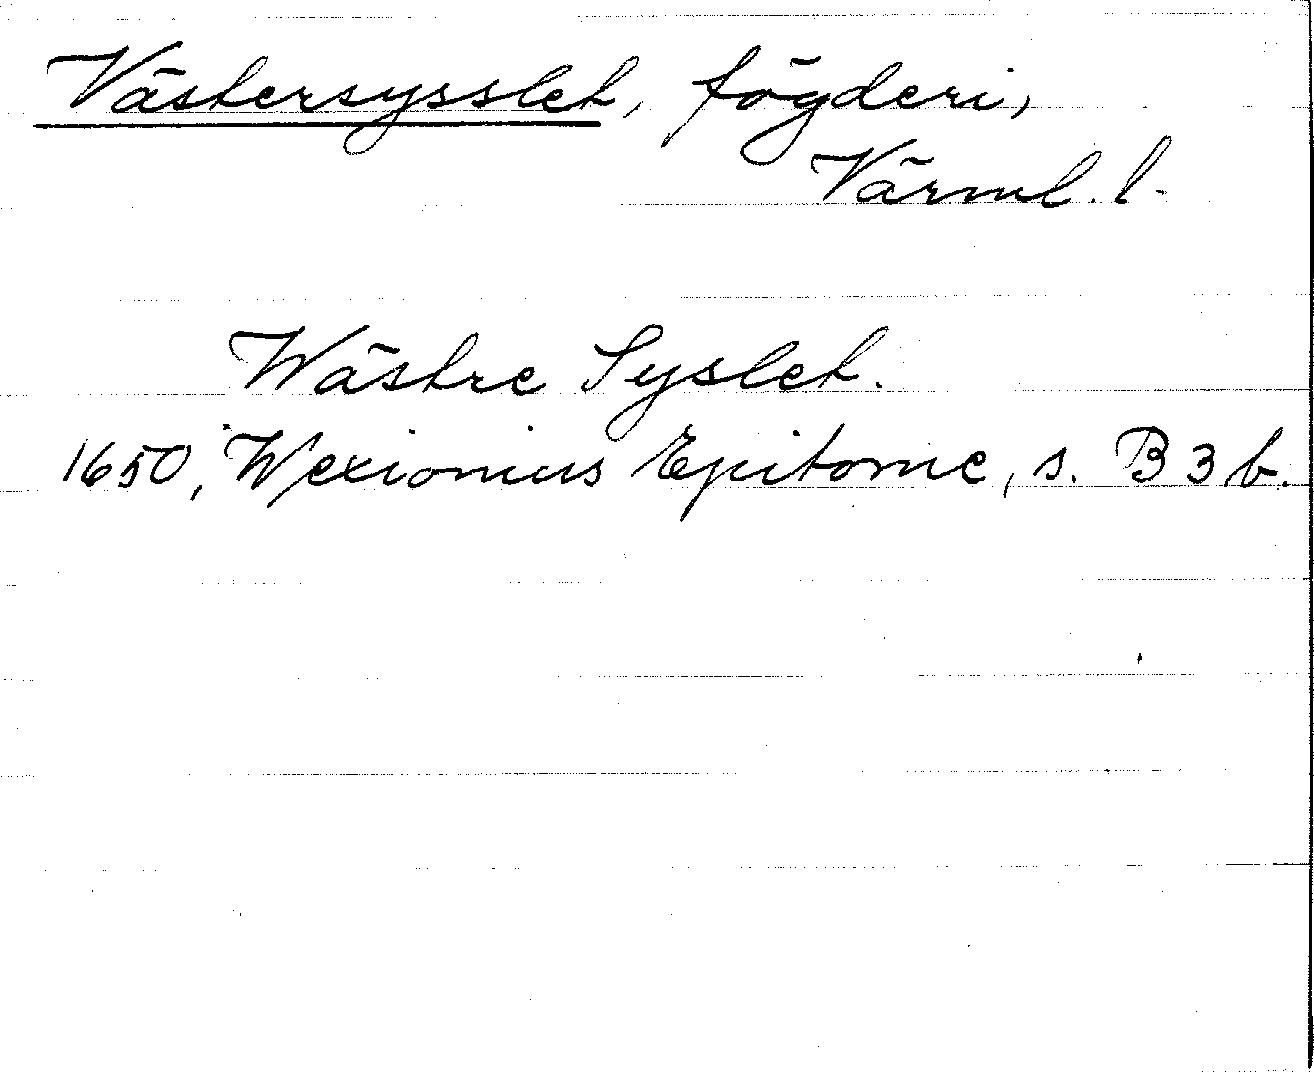 Västersysslet, fögderi,
Värml. l.
Wästre Syslet.
1650, Wexionius Epitome, s. B 3 b.